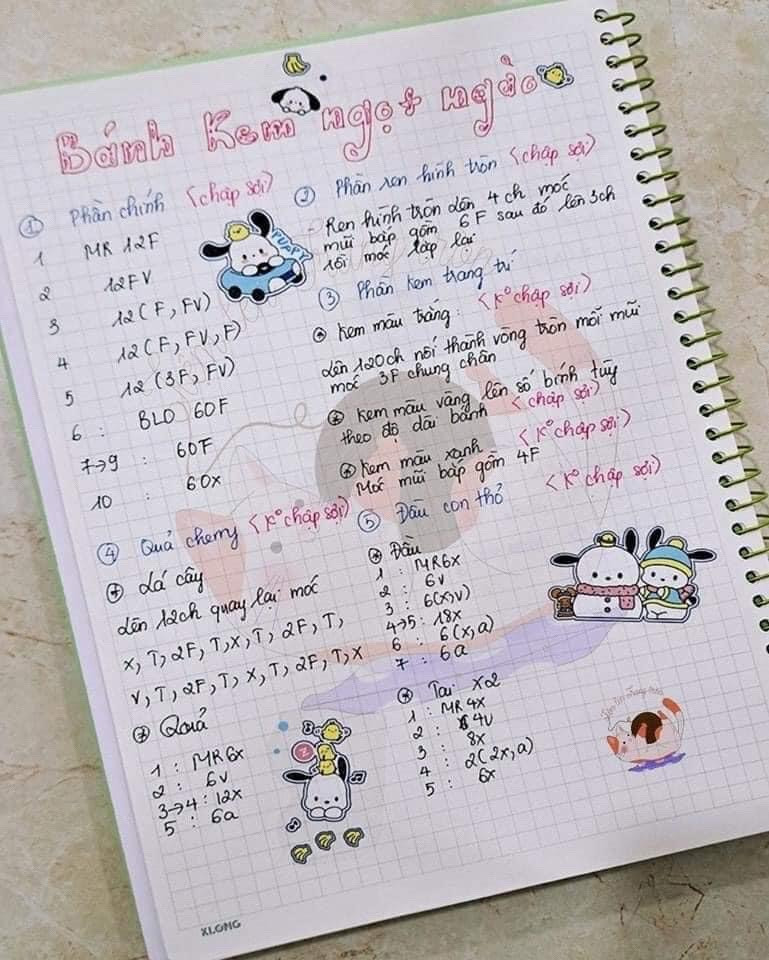 Bánh Kem ngọt ngào
① Phần chính <chập sợi>
1 MR 12F
2 12FV
3 12(F, FV)
4 12(F, FV, F)
5 12(3F, FV)
6 : BLO 60F
7→9 : 60F
10 : 60X
② Phần ren hình tròn <chập sợi>
Ren hình tròn lên 4ch móc
mũi bắp gồm 6F sau đó lên 3ch
rồi móc lặp lại
③ Phần kem trang trí
* Kem màu trắng : <K° chập sợi>
Lên 120ch nối thành vòng tròn mỗi mũi
móc 3F chung chân
* Kem màu vàng lên số bính tùy
theo độ dài bánh <chập sợi>
* Kem màu xanh <K° chập sợi>
Móc mũi bắp gồm 4F
④ Quả cherry <K° chập sợi>
* Lá cây
Lên 12ch quay lại móc
X, T, 2F, T, X, T, 2F, T,
V, T, 2F, T, X, T, 2F, T, X
* Quả
1 : MR6X
2 : 6V
3→4 : 12X
5 : 6a
⑤ Đầu con thỏ <K° chập sợi>
* Đầu
1 : MR6X
2 : 6V
3 : 6(X,V)
4→5 : 18X
6 : 6(X,a)
7 : 6a
* Tai X2
1 : MR 4X
2 : 4V
3 : 8X
4 : 2(2X,a)
5 : 6X
PUPPY
Z
XLONG